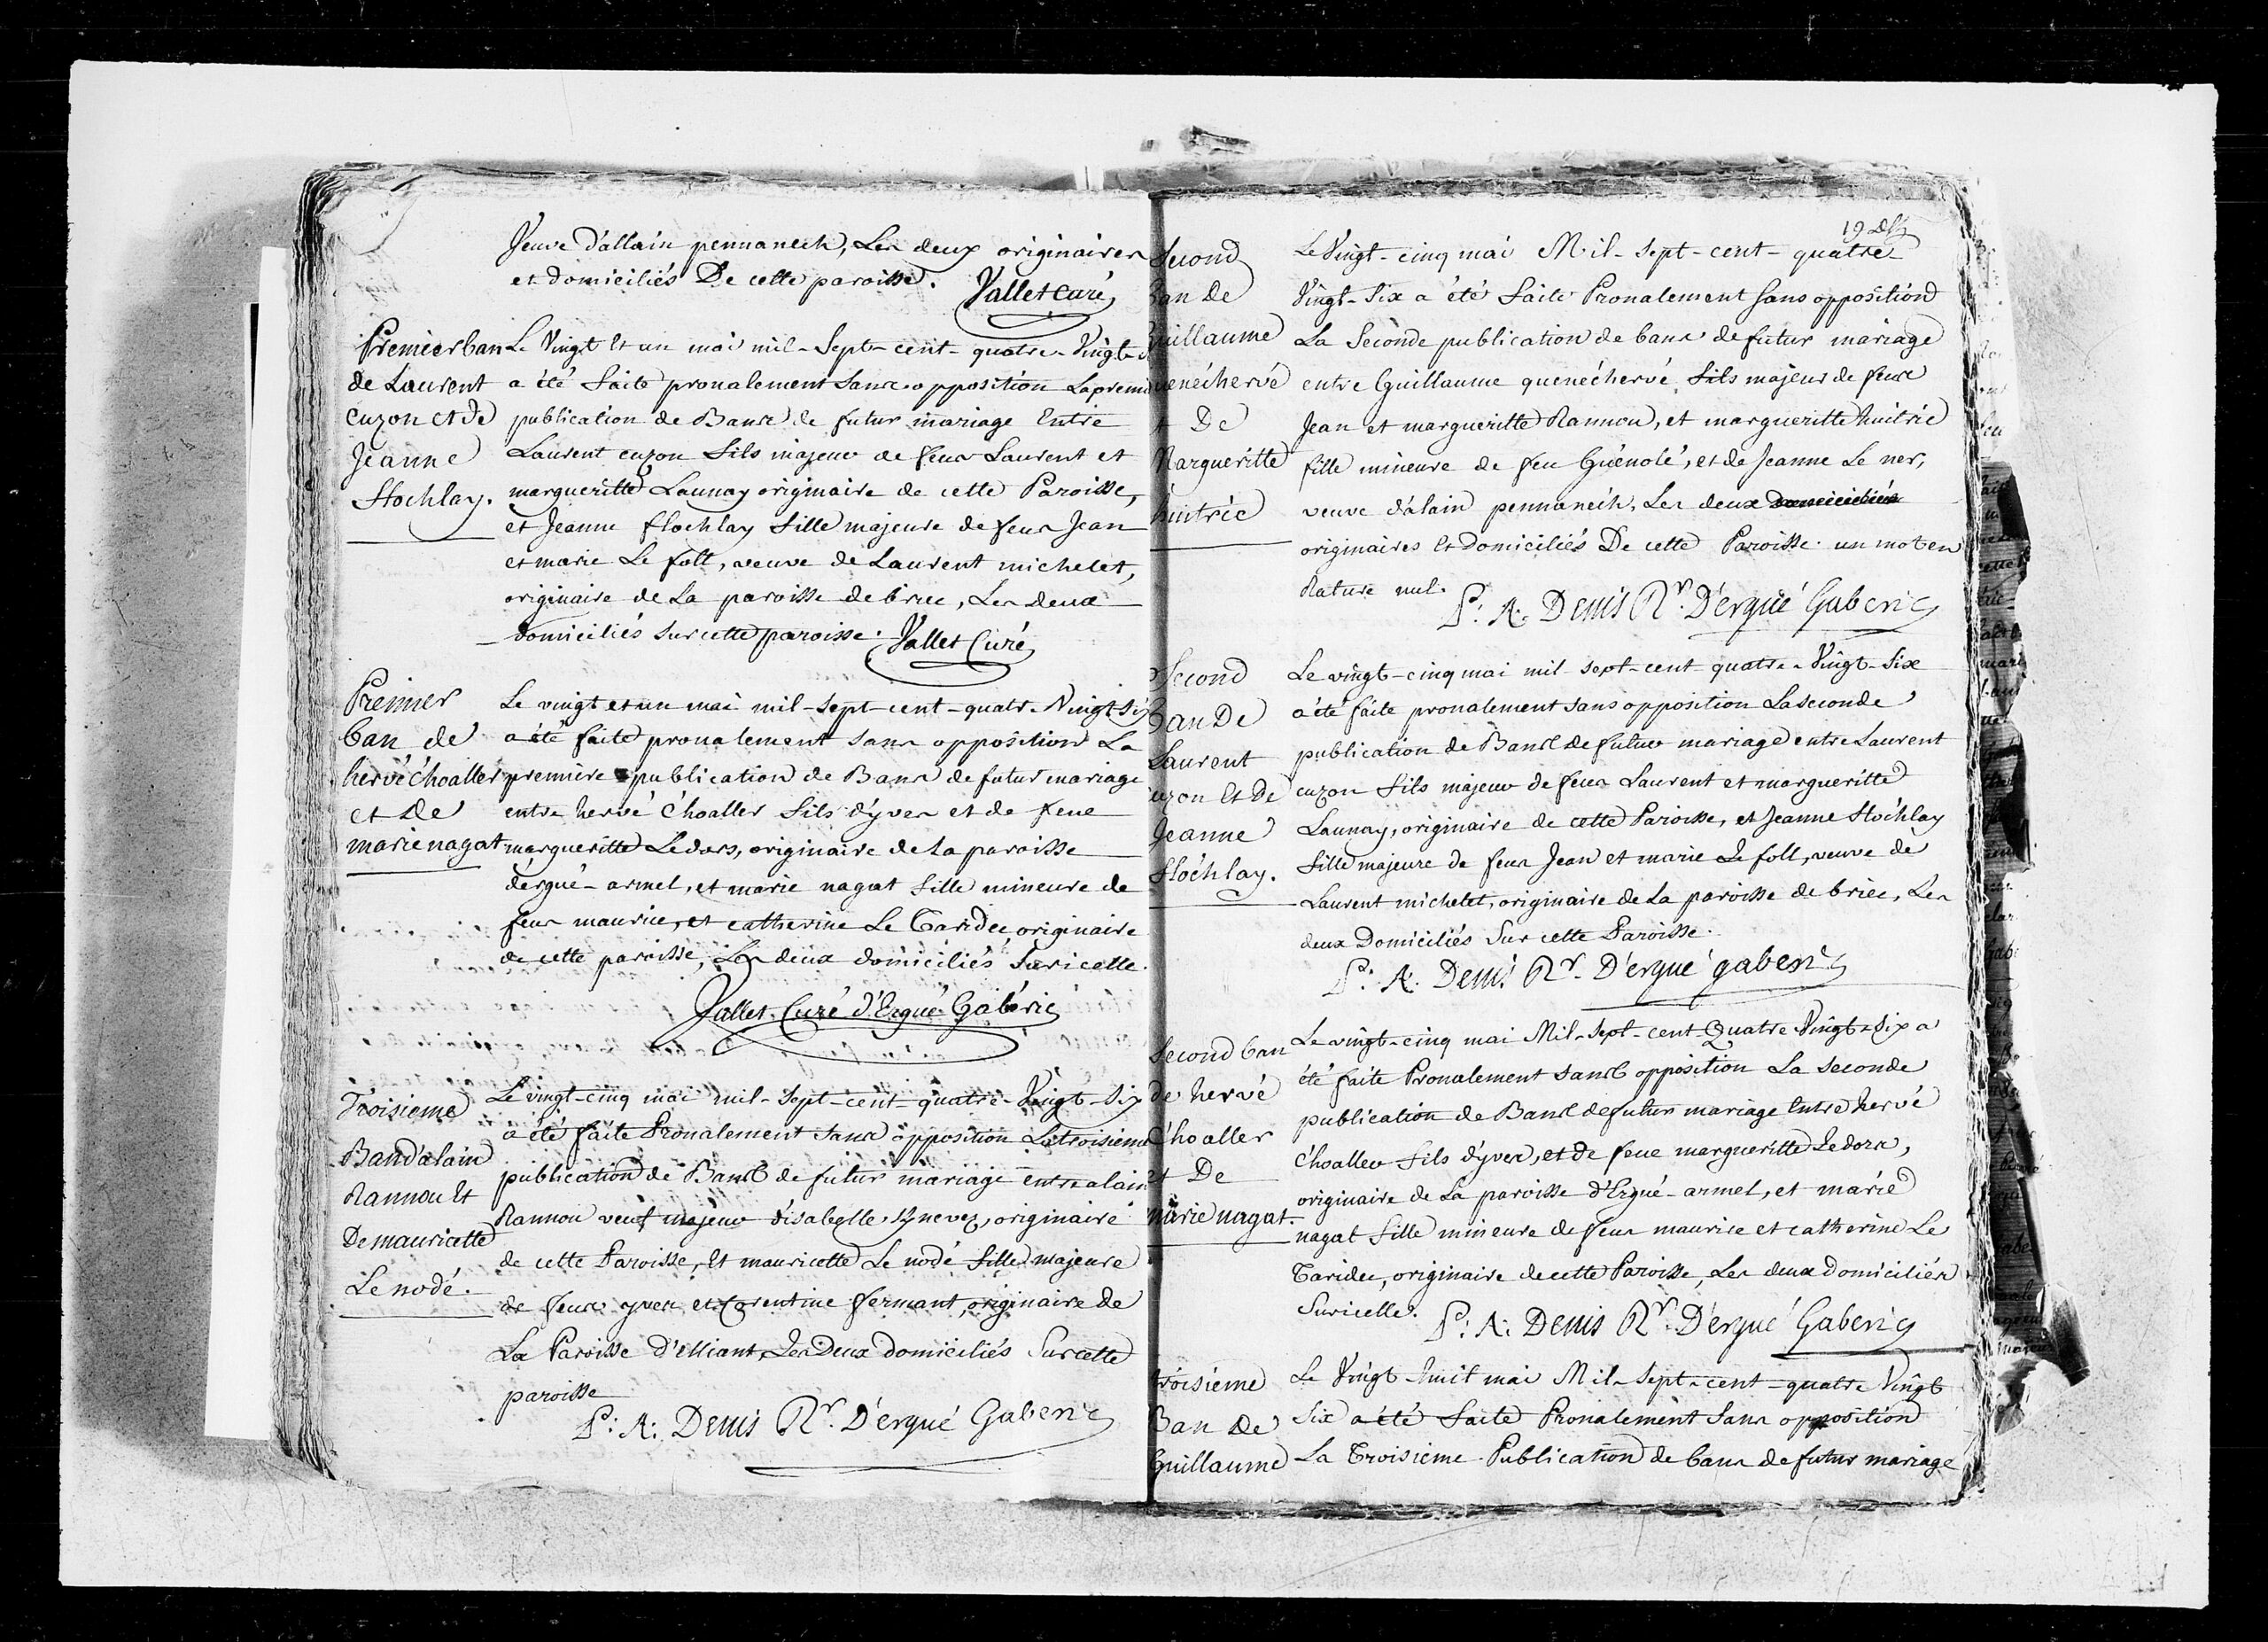 Veuve d'allain pennanech, Les deux originaires
et domiciliés De cette paroisse. Vallet curé
Premier ban
de Laurent
cuzon et de
Jeanne
flochlay.
Le Vingt Et un mai mil-sept-cent-quatre-Vingt-
a été faite pronalement sans opposition La premi
publication de Bans de futur mariage Entre
Laurent cuzon fils majeur de feus Laurent et
margueritte Launay originaire de cette Paroisse,
et Jeanne flochlay fille majeure de feus Jean
et marie Le foll, veuve de Laurent michelet,
originaire de La paroisse de briec, Les deux
domiciliés sur cette paroisse. Vallet Curé
Premier
ban de
hervé c'hoaller
et de
marie nagat
Le vingt et un mai mil-sept-cent-quatre-Vingt-six
a été faite pronalement sans opposition La
première publication de Bans de futur mariage
entre hervé C'hoaller fils d'yves et de feue
margueritte Ledors, originaire de La paroisse
d'ergué-armel, et marie nagat fille mineure de
feus maurice, et catherine Le Taridec, originaire
de cette paroisse, Les deux domiciliés Sur icelle.
Vallet. Curé d'Ergué-Gabéric
Troisieme
Ban d'alain
Rannou Et
De mauricette
Le nodé.
Le vingt-cinq mai mil-sept-cent-quatre-Vingt-six
a été faite Pronalement sans opposition La troisieme
publication de Bans de futur mariage entre alain
Rannou veuf majeur d'isabelle, originaire
de cette Paroisse, Et mauricette Le nodé fille majeure
de feus yves et Corentine fermant, originaire de
La Paroisse d'Elliant, Les Deux domiciliés Sur cette
paroisse
P: A: Denis Rr. D'ergué Gaberic
19
Second
Ban de
Guillaume
quenéchervé
De
Margueritte
huitric
Le Vingt-cinq mai Mil-sept-cent-quatre-
Vingt-Six a été faite Pronalement sans opposition
La Seconde publication de bans de futur mariage
entre Guillaume quenéchervé fils majeur de feus
Jean et margueritte Rannou, et margueritte huitric
fille mineure de feu Guénolé, et de Jeanne Le ner,
veuve d'alain pennanech, Les deux domiciliés
originaires Et domiciliés De cette Paroisse. un mot en
Rature nul.
P: A: Denis Rr. D'ergué Gaberic
Second
Ban De
Laurent
cuzon Et De
Jeanne
floc'hlay.
Le vingt-cinq mai mil-sept-cent-quatre-Vingt-Six
a été faite pronalement sans opposition La seconde
publication de Bans de futur mariage entre Laurent
cuzon fils majeur de feus Laurent et margueritte
Launay, originaire de cette Paroisse, et Jeanne floc'hlay
fille majeure de feus Jean et marie Le foll, veuve de
Laurent michelet, originaire de La paroisse de briec, Les
deux Domiciliés Sur cette Paroisse.
P: A: Denis Rr. D'ergué gaberic
Second ban
de hervé
C'hoaller
et De
marie nagat.
Le vingt-cinq mai Mil-sept-cent-Quatre Vingt-Six a
été faite Pronalement sans opposition La seconde
publication de Bans de futur mariage Entre hervé
C'hoaller fils d'yves, et de feue margueritte Ledors,
originaire de La paroisse d'Ergué-armel, et marie
nagat fille mineure de feus maurice et catherine Le
Taridec, originaire de cette Paroisse, Les deux domiciliés
Sur icelle. P: A: Denis Rr. D'ergué Gaberic
troisieme
Ban de
Guillaume
Le Vingt-huit mai Mil-sept-cent-quatre Vingt
Six a été faite Pronalement sans opposition
La Troisieme Publication de bans de futur mariage